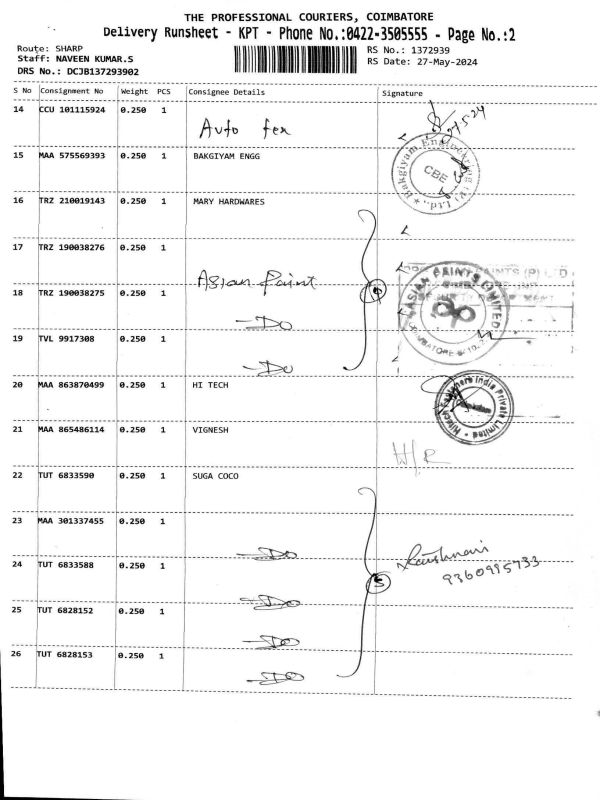 THE PROFESSIONAL COURIERS, COIMBATORE
Delivery Runsheet - KPT - Phone No.:0422-3505555 - Page No.:2
Route: SHARP
Staff: NAVEEN KUMAR.S
DRS No.: DCJB137293902
RS No.: 1372939
RS Date: 27-May-2024
S No Consignment No Weight PCS Consignee Details Signature
14 CCU 101115924 0.250 1 Auto fer
27.5.24
15 MAA 575569393 0.250 1 BAKGIYAM ENGG
Bakgiyam Engineering (P) Ltd.,
CBE
16 TRZ 210019143 0.250 1 MARY HARDWARES
17 TRZ 190038276 0.250 1 Asian Paint
ASIAN PAINTS LIMITED
18 TRZ 190038275 0.250 1 -Do
19 TVL 9917308 0.250 1 -Do
20 MAA 863870499 0.250 1 HI TECH
India Private Limited
21 MAA 865486114 0.250 1 VIGNESH
H/R
22 TUT 6833590 0.250 1 SUGA COCO
23 MAA 301337455 0.250 1 -Do
24 TUT 6833588 0.250 1 -Do
5
9360995733
25 TUT 6828152 0.250 1 -Do
26 TUT 6828153 0.250 1 -Do